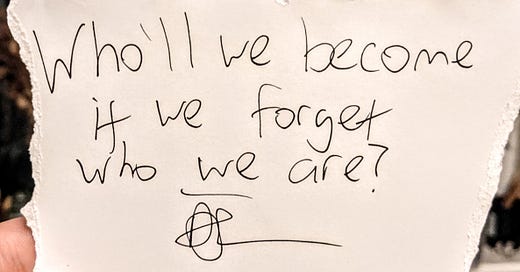 Who'll we become
if we forget
who we are?